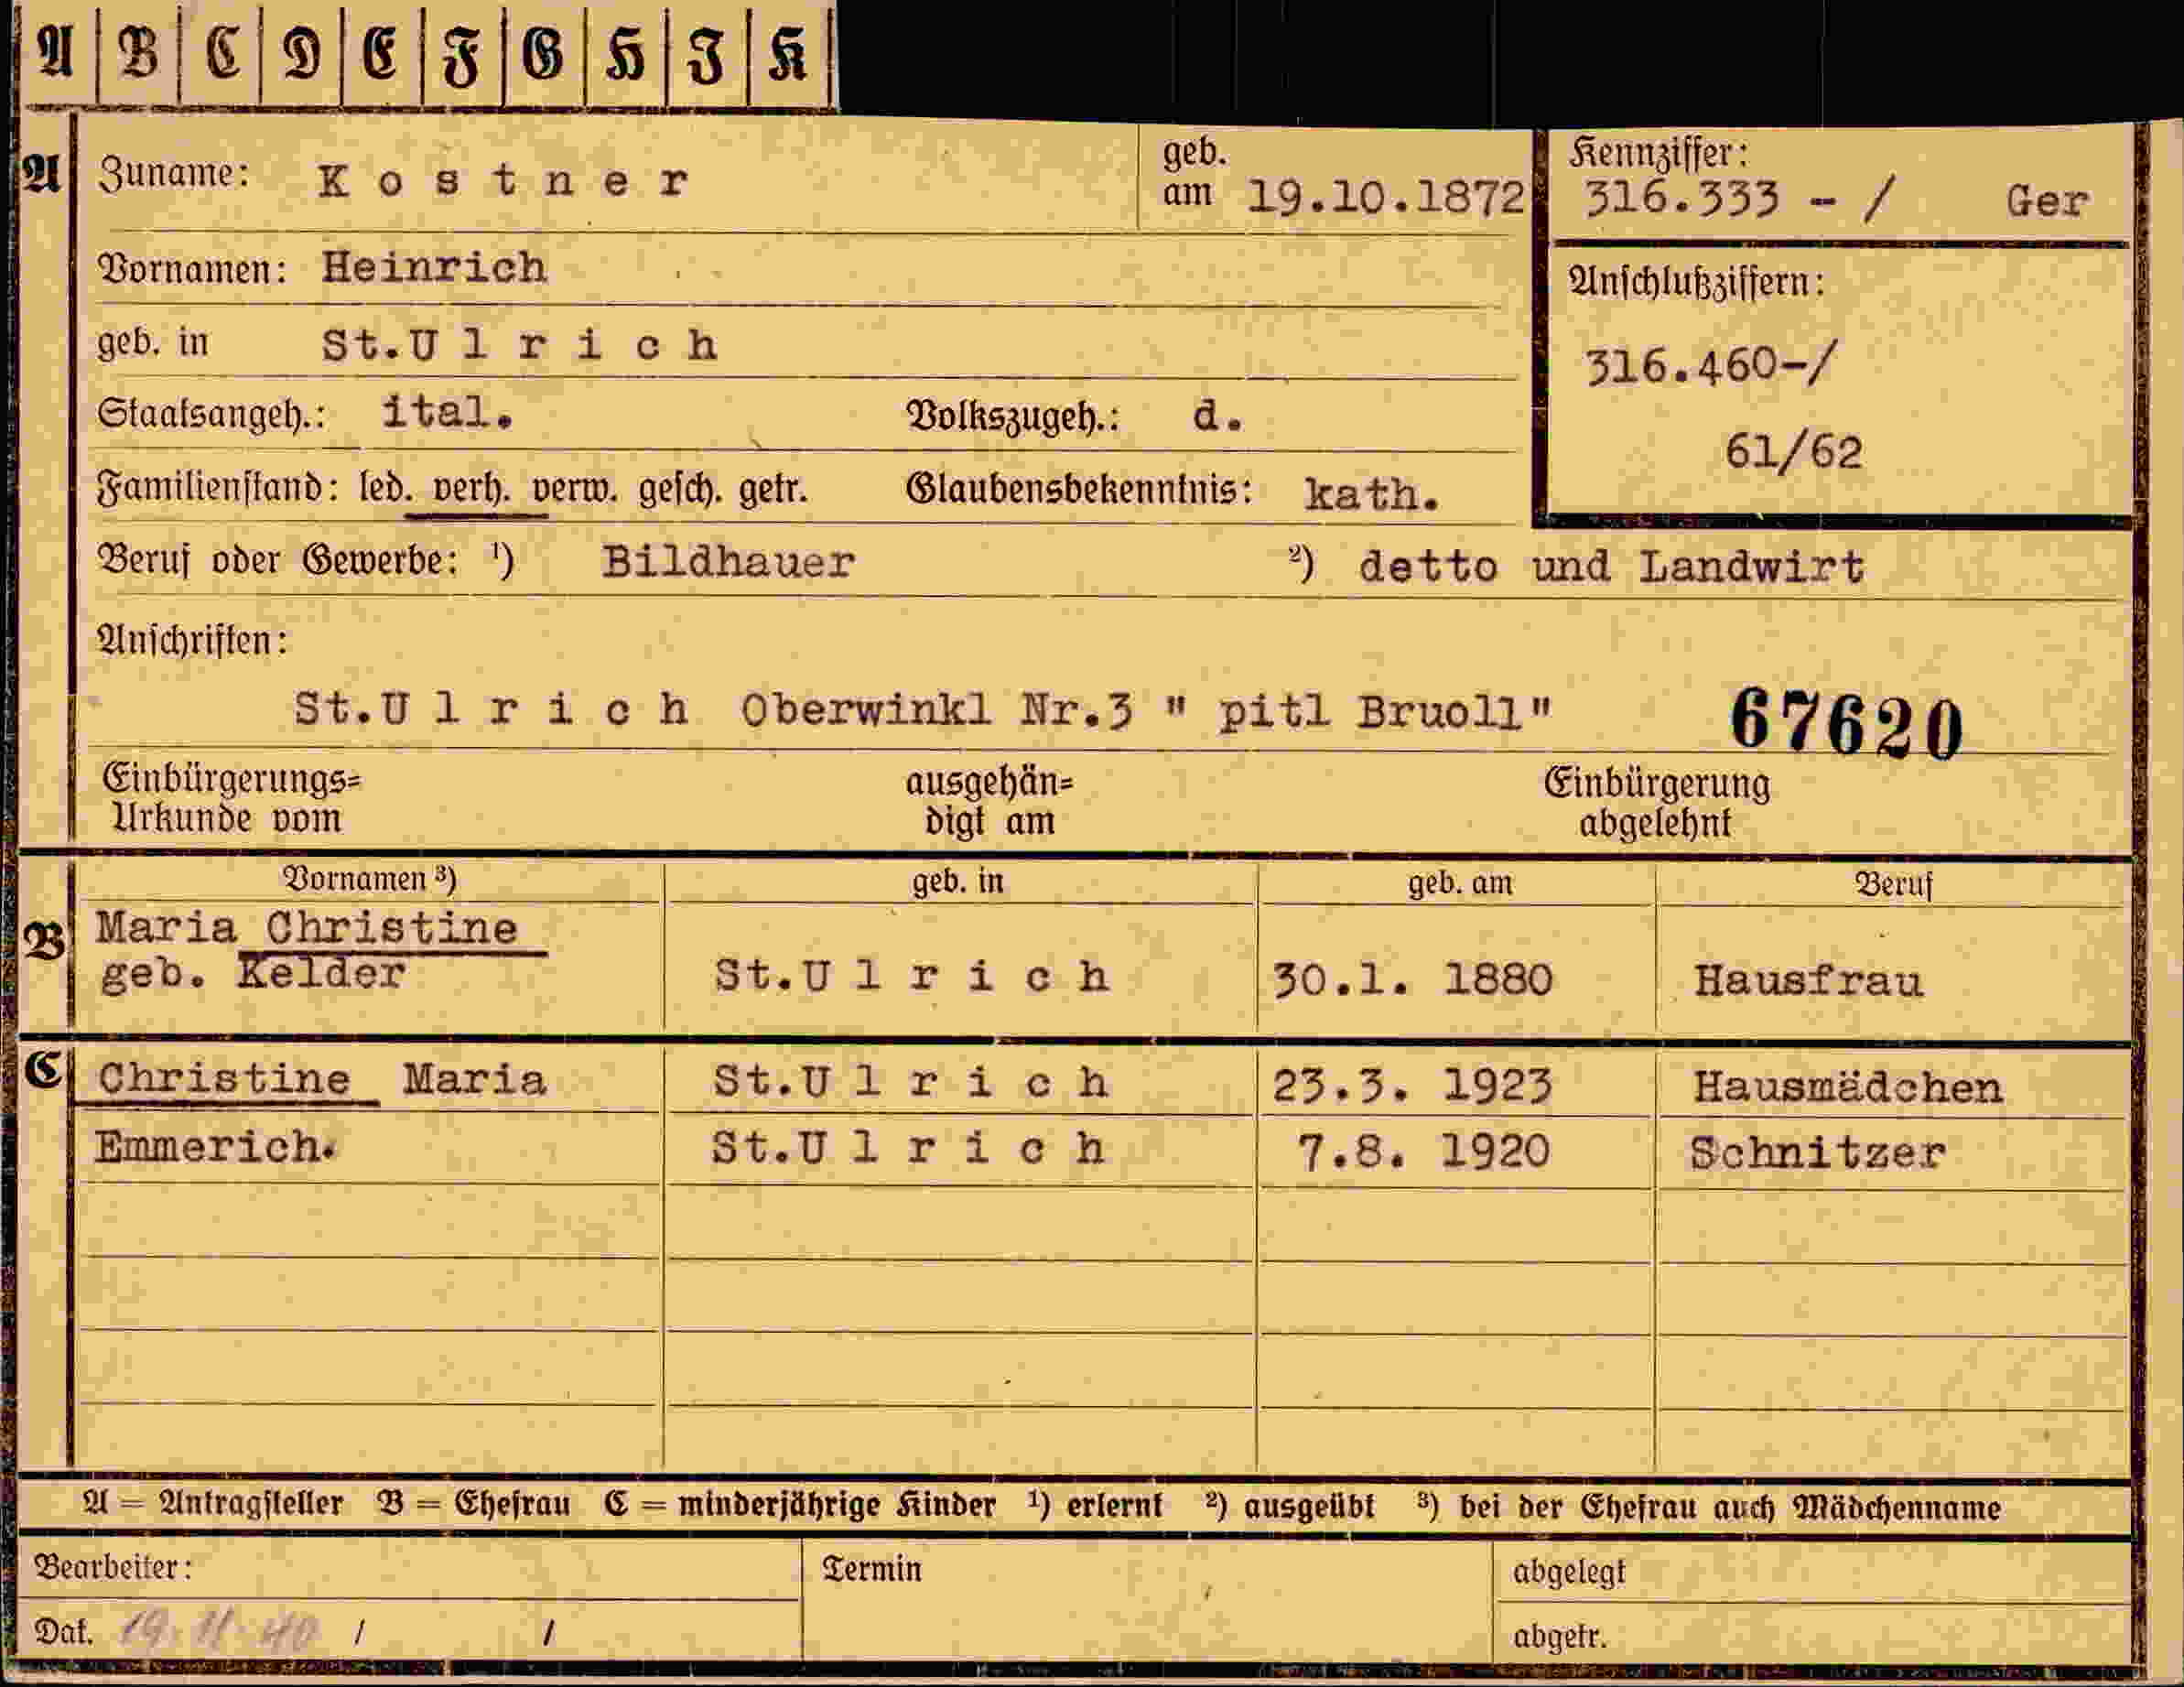 A B C D E F G H I K
A Zuname: K o s t n e r geb. am 19.10.1872 Kennziffer: 316.333 - / Ger
Vornamen: Heinrich
geb. in St.U l r i c h
Anschlußziffern:
316.460-/
61/62
Staatsangeh.: ital. Volkszugeh.: d.
Familienstand: led. verh. verw. gesch. getr. Glaubensbekenntnis: kath.
Beruf oder Gewerbe: ¹) Bildhauer ²) detto und Landwirt
Anschriften:
St.U l r i c h Oberwinkl Nr.3 " pitl Bruoll" 67620
Einbürgerungs= ausgehän= Einbürgerung
Urkunde vom digt am abgelehnt
Vornamen ³) geb. in geb. am Beruf
B Maria Christine
geb. Kelder St.U l r i c h 30.1. 1880 Hausfrau
C Christine Maria St.U l r i c h 23.3. 1923 Hausmädchen
Emmerich. St.U l r i c h 7.8. 1920 Schnitzer
A = Antragsteller B = Ehefrau C = minderjährige Kinder ¹) erlernt ²) ausgeübt ³) bei der Ehefrau auch Mädchenname
Bearbeiter: Termin abgelegt
Dat. 19.11.40 / / abgetr.